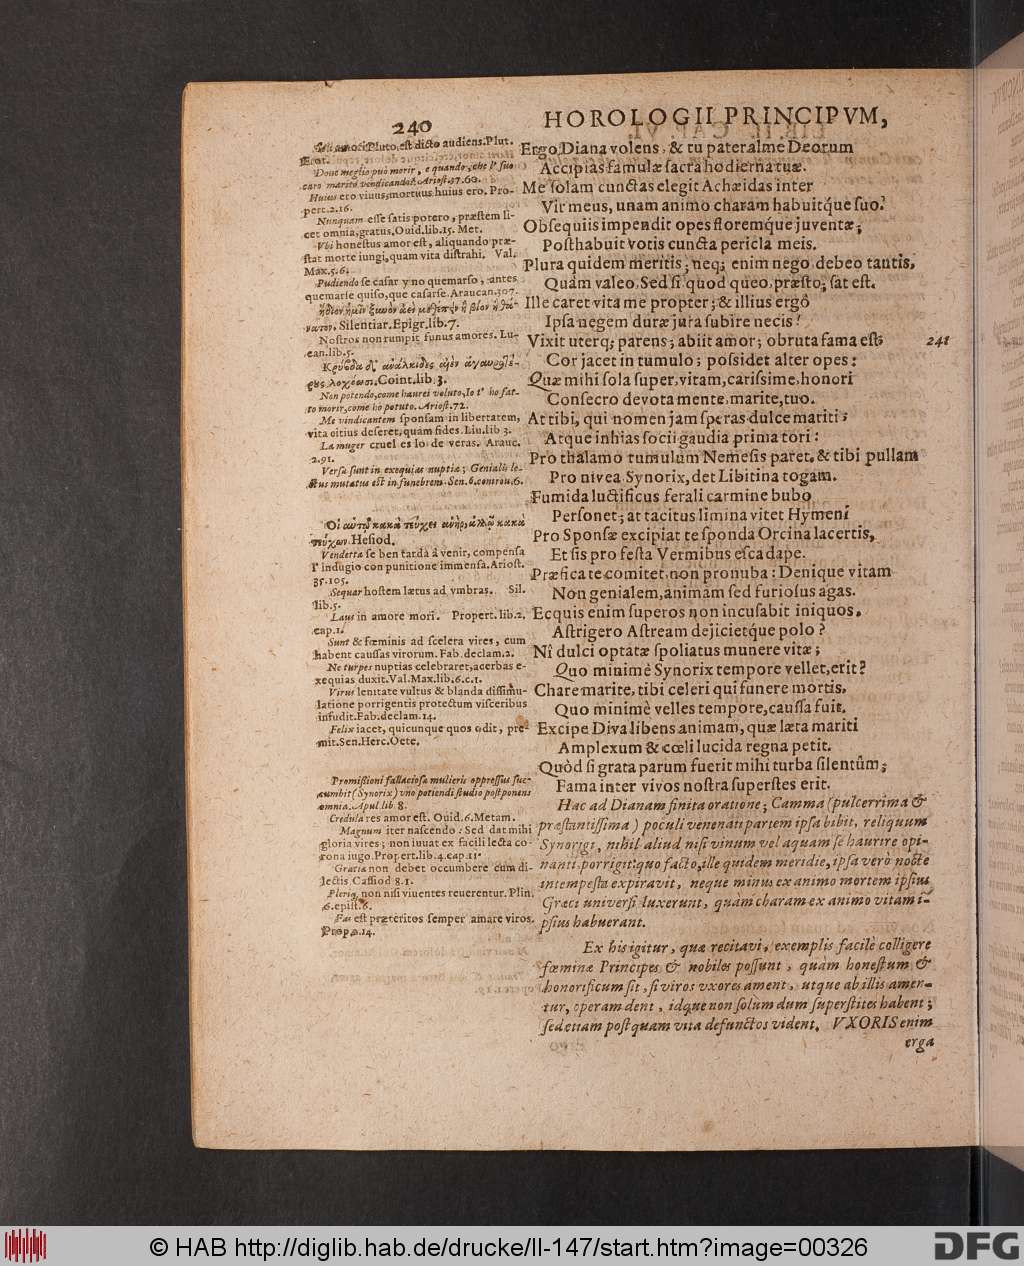 240
HOROLOGII PRINCIPVM,
Pluto, est dicto audiens. Plut.
Erot.
Donc meglio può morir, e quando, che l' suo
caro marito vendicando? Ariost. 37. 60.
Huius ero viuus, mortuus huius ero. Pro-
pert. 2. 16.
Nunquam esse satis potero, præstem li-
cet omnia, gratus. Ouid. lib. 15. Met.
Vbi honestus amor est, aliquando præ-
stat morte iungi, quam vita distrahi. Val.
Max. 5. 6.
Pudiendo se casar y no quemarso, antes
quemarse quiso, que casarse. Araucan. 307.
Silentiar. Epigr. lib. 7.
Nostros non rumpit funus amores. Lu-
can. lib. 5.
Coint. lib. 3.
Non potendo, come haurei voluto, Io t' ho fat-
to morir, come ho potuto. Ariost. 72.
Me vindicantem sponsam in libertatem,
vita citius deseret, quam fides. Liu. lib 3.
La muger cruel es lo de veras. Arauc.
2. 91.
Versa sunt in exequias nuptiæ; Genialis le-
ctus mutatus est in funebrem. Sen. 6. controu. 6.
Οἱ αὐτῷ κακὰ τεύχει ἀνὴρ, ἄλλῳ κακὰ
τεύχων. Hesiod.
Vendetta se ben tarda à venir, compensa
l' indugio con punitione immensa. Ariost.
35. 105.
Sequar hostem lætus ad vmbras. Sil.
lib. 5.
Laus in amore mori. Propert. lib. 2.
cap. 1.
Sunt & fœminis ad scelera vires, cum
habent caussas virorum. Fab. declam. 2.
Ne turpes nuptias celebraret, acerbas e-
xequias duxit. Val. Max. lib. 6. c. 1.
Virus lenitate vultus & blanda dissimu-
latione porrigentis protectum visceribus
infudit. Fab. declam. 14.
Felix iacet, quicunque quos odit, pre-
mit. Sen. Herc. Oete.
Promissioni fallaciosa mulieris oppressus suc-
cumbit (Synorix) vno potiendi studio postponens
omnia. Apul lib. 8.
Credula res amor est. Ouid. 6. Metam.
Magnum iter nascendo: Sed dat mihi
gloria vires; non iuuat ex facili lecta co-
rona iugo. Propert. lib. 4. cap. 11.
Gratia non debet occumbere cum di-
lectis. Cassiod 8. 1.
Pleriq, non nisi viuentes reuerentur. Plin.
6. epist. 8.
Fas est præteritos semper amare viros.
Prop. 2. 14.
Ergo, Diana volens, & tu pater alme Deorum
Accipias famulæ sacra hodierna tuæ.
Me solam cunctas elegit Achæidas inter
Vir meus, unam animo charam habuitque suo.
Obsequiis impendit opes floremque juventæ;
Posthabuit votis cuncta pericla meis.
Plura quidem meritis; neq; enim nego debeo tantis,
Quàm valeo. Sed si quod queo præsto; sat est.
Ille caret vitâ me propter; & illius ergô
Ipsa negem duræ jura subire necis?
Vixit uterq; parens; abiit amor; obruta fama est;
241
Cor jacet in tumulo; possidet alter opes:
Quæ mihi sola super, vitam, carissime, honori
Consecro devota mente, marite, tuo.
At tibi, qui nomen jam speras dulce mariti;
Atque inhias socii gaudia prima tori:
Pro thalamo tumulum Nemesis paret, & tibi pullam
Pro nivea, Synorix, det Libitina togam.
Fumida luctificus ferali carmine bubo
Personet; at tacitus limina vitet Hymen!
Pro Sponsæ excipiat te sponda Orcina lacertis,
Et sis pro festa Vermibus esca dape.
Præfica te comitet, non pronuba: Denique vitam
Non genialem, animam sed furiosus agas.
Ecquis enim superos non incusabit iniquos,
Astrigero Astream dejicietque polo?
Ni dulci optatæ spoliatus munere vitæ;
Quo minimè Synorix tempore vellet, erit?
Chare marite, tibi celeri qui funere mortis,
Quo minimè velles tempore, caussa fuit.
Excipe Diva libens animam, quæ læta mariti
Amplexum & cœli lucida regna petit.
Quòd si grata parum fuerit mihi turba silentûm;
Fama inter vivos nostra superstes erit.
Hac ad Dianam finita oratione; Camma (pulcerrima &
præstantissima) poculi venenati partem ipsa bibit, reliquum
Synorigi, nihil aliud nisi vinum vel aquam se haurire opi-
nanti porrigit: quo facto, ille quidem meridie, ipsa verò nocte
intempesta expiravit, neque minus ex animo mortem ipsius
Græci universi luxerunt, quàm charam ex animo vitam i-
psius habuerant.
Ex his igitur, quæ recitavi, exemplis facilè colligere
fœminæ Principes & nobiles possunt, quàm honestum &
honorificum sit, si viros vxores ament, utque ab illis amen-
tur, operam dent, idque non solum dum superstites habent;
sed etiam postquam vita defunctos vident. VXORIS enim
erga
© HAB http://diglib.hab.de/drucke/ll-147/start.htm?image=00326
DFG